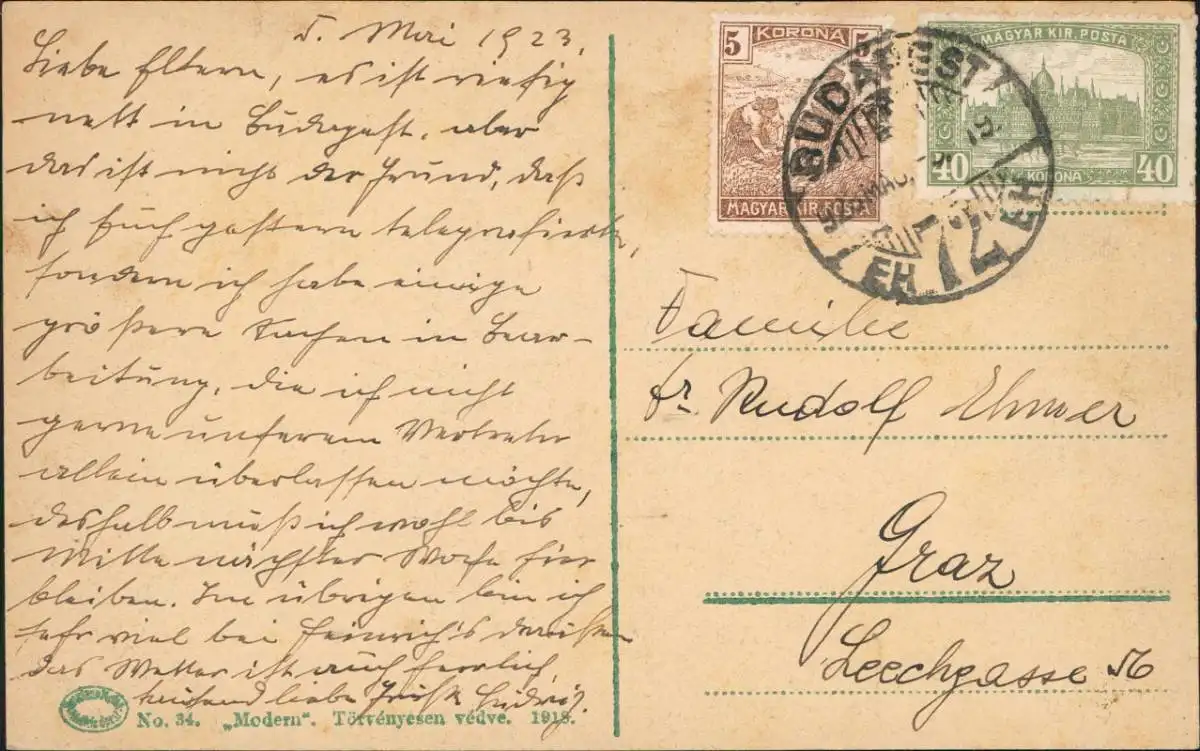 5. Mai 1923.
Liebe Eltern, es ist riesig
nett in Budapest, aber
das ist nicht der Grund, daß
ich Euch gestern telegrafierte,
sondern ich habe einige
größere Sachen in Bear-
beitung, die ich nicht
gerne unserem Vertreter
allein überlassen möchte,
deshalb muß ich wohl bis
Mitte nächster Woche hier
bleiben. Im übrigen bin ich
sehr viel bei Heinrich's draußen
das Wetter ist auch herrlich
tausend liebe Grüße Ludwig.
No. 34. „Modern". Törvényesen védve. 1918.
5 KORONA
MAGYAR KIR. POSTA
MAGYAR KIR. POSTA
40 KORONA 40
BUDAPEST
72
EH
Familie
Dr. Rudolf Ehmer
Graz
Leechgasse 56